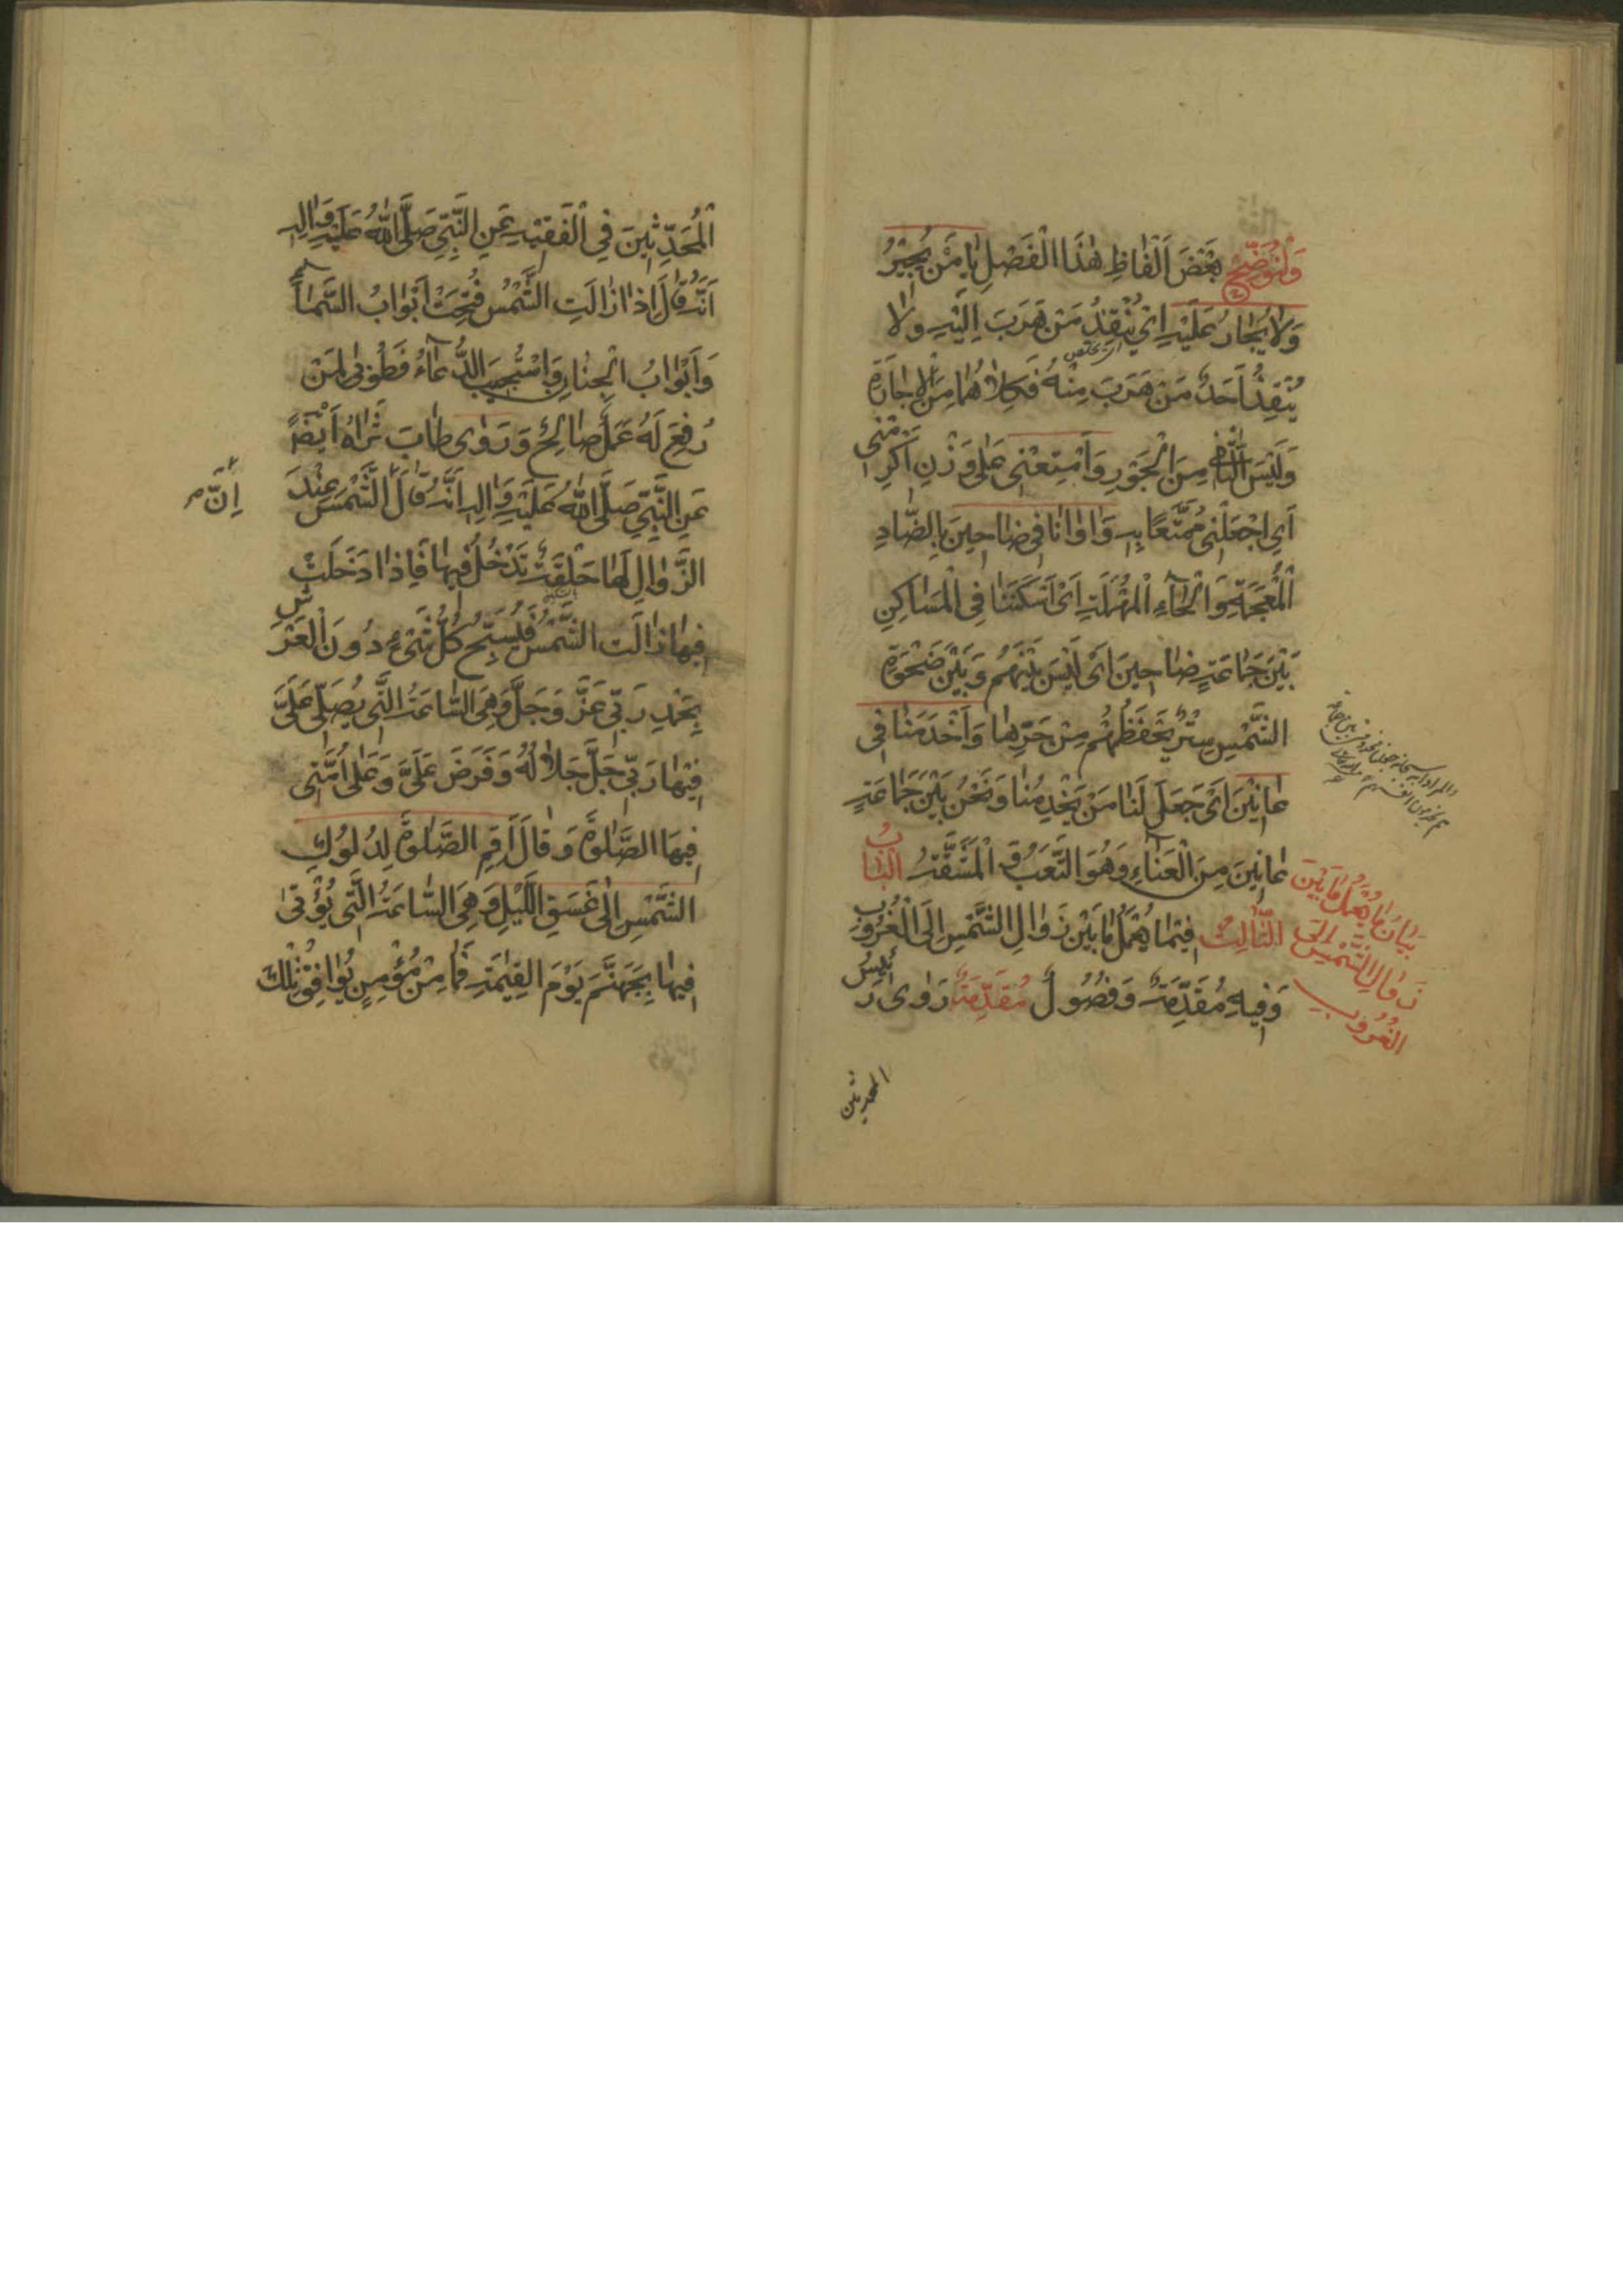 وَلْنُوَضِّحْ بَعْضَ اَلْفاظِ هٰذَا الْفَصْلِ يا مَنْ يُجيرُ
وَلا يُجارُ عَلَيْهِ اَيْ يُنْقِذُ مَنْ هَرَبَ اِلَيْهِ وَلا
يُنْقِذُ اَحَدٌ مَنْ هَرَبَ مِنْهُ فَكِلاهُما مِنَ الْاِجارَةِ
وَلَيْسَ الثّانى مِنَ الْجَوْرِ وَامْتِعْنى عَلى وَزْنِ اَكْرِمْنى
اَىِ اجْعَلْنى مُمَتَّعًا بِهِ وَاوانا فى ضاحينَ بِالضّادِ
الْمُعْجَمَةِ وَالْحآءِ الْمُهْمَلَةِ اَىْ اَسْكَنَنا فِى الْمَساكِنِ
بَيْنَ جَماعَةٍ ضاحينَ اَىْ لَيْسَ بَيْنَهُمْ وَبَيْنَ ضَحْوَةِ
الشَّمْسِ سِتْرٌ يَحْفَظُهُمْ مِنْ حَرِّها وَاَخْدَمَنا فى
عانينَ اَىْ جَعَلَ لَنا مَنْ يَخْدِمُنا وَنَحْنُ بَيْنَ جَماعَةٍ
عانينَ مِنَ الْعَنآءِ وَهُوَ التَّعَبُ وَ الْمَشَقَّةُ الْبابُ
الثّالِثُ فيما يُعْمَلُ ما بَيْنَ زَوالِ الشَّمْسِ اِلَى الْغُرُوبِ
وَفيهِ مُقَدِّمَةٌ وَفُصُولٌ مُقَدِّمَةٌ رَوى رَئيسُ
بَيانُ ما يُعْمَلُ ما بَيْنَ
زَوالِ الشَّمْسِ اِلَى
الْغُرُوبِ
المحدثين
الْمُحَدِّثينَ فِى الْفَقيهِ عَنِ النَّبِىِّ صَلَّى اللّٰهُ عَلَيْهِ وَالِهِ
اَنَّهُ قالَ اِذا زالَتِ الشَّمْسُ فُتِحَتْ اَبْوابُ السَّمآءِ
وَاَبْوابُ الْجِنانِ وَاسْتُجيبَ الدُّعآءُ فَطُوبى لِمَنْ
رُفِعَ لَهُ عَمَلٌ صالِحٌ وَرَوى طابَ ثَراهُ اَيْضًا
عَنِ النَّبِىِّ صَلَّى اللّٰهُ عَلَيْهِ وَالِهِ اَنَّهُ قالَ الشَّمْسَ عِنْدَ
اِنَّ
الزَّوالِ لَها حَلْقَةٌ تَدْخُلُ فيها فَاِذا دَخَلَتْ
فيها زالَت الشَّمْسُ فَيُسَبِّحُ كُلُّ شَىْءٍ دُونَ الْعَرْشِ
بِحَمْدِ رَبّى عَزَّ وَجَلَّ وَهِىَ السّاعَةُ الَّتى يُصَلّى عَلَىَّ
فيها رَبّى جَلَّ جَلالُهُ وَفَرَضَ عَلَىَّ وَعَلى اُمَّتى
فيهَا الصَّلوةَ وَقالَ اَقِمِ الصَّلوةَ لِدُلُوكِ
الشَّمْسِ اِلى غَسَقِ اللَّيْلِ وَهِىَ السّاعَةُ الَّتى يُؤْتى
فيها بِجَهَنَّمَ يَوْمَ الْقِيمَةِ فَما مِنْ مُؤْمِنٍ يُوافِقُ تِلْكَ